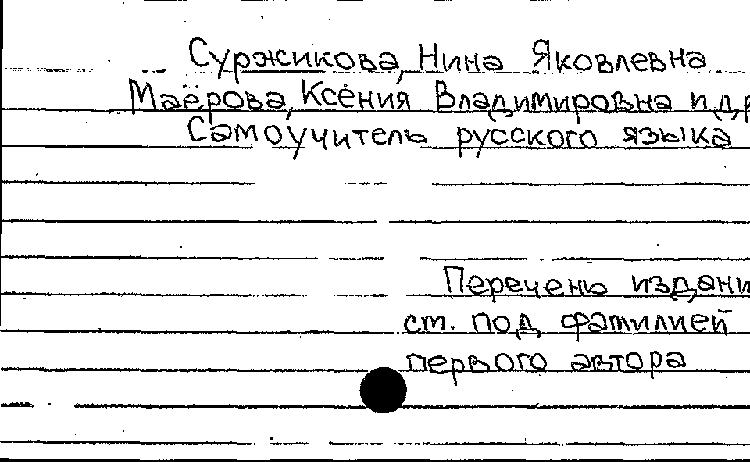 Суржикова, Нина Яковлевна
Маёрова, Ксения Владимировна и др
Самоучитель русского языка
Перечень издани
ст. под фамилией
первого автора